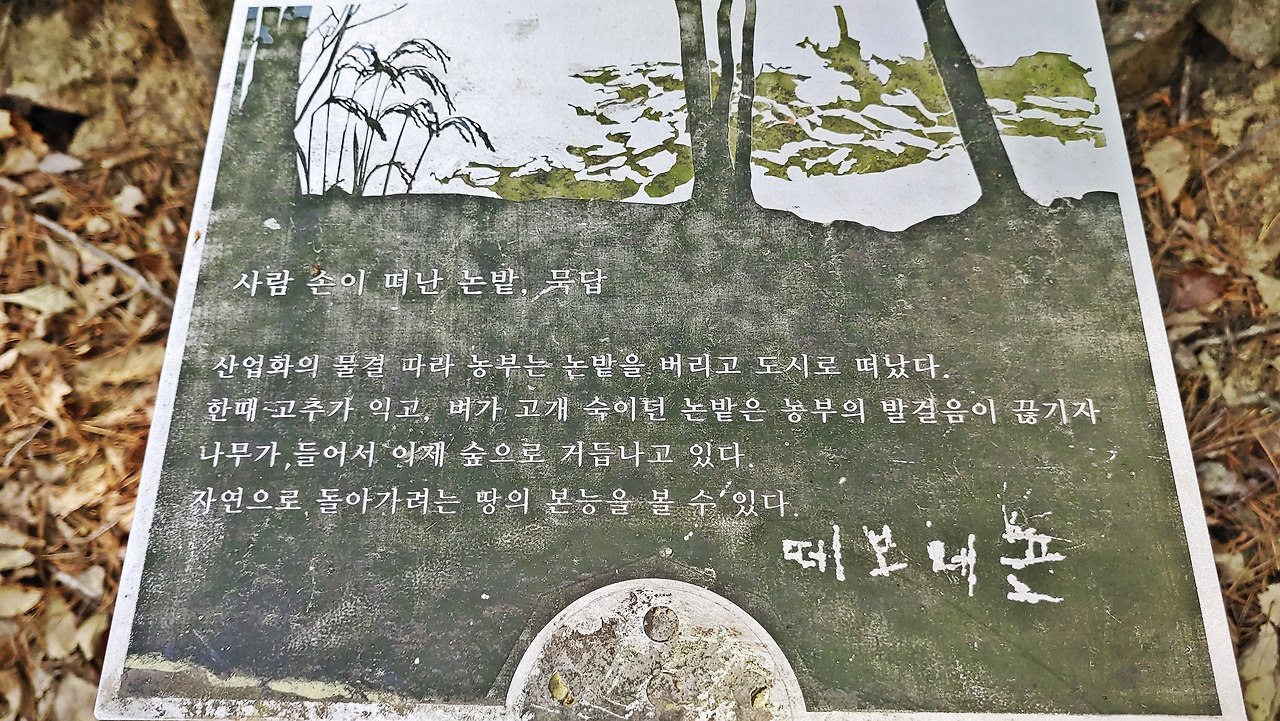 사람 손이 떠난 논밭, 묵답
산업화의 물결 따라 농부는 논밭을 버리고 도시로 떠났다.
한때 고추가 익고, 벼가 고개 숙이던 논밭은 농부의 발걸음이 끊기자
나무가 들어서 이제 숲으로 거듭나고 있다.
자연으로 돌아가려는 땅의 본능을 볼 수 있다.